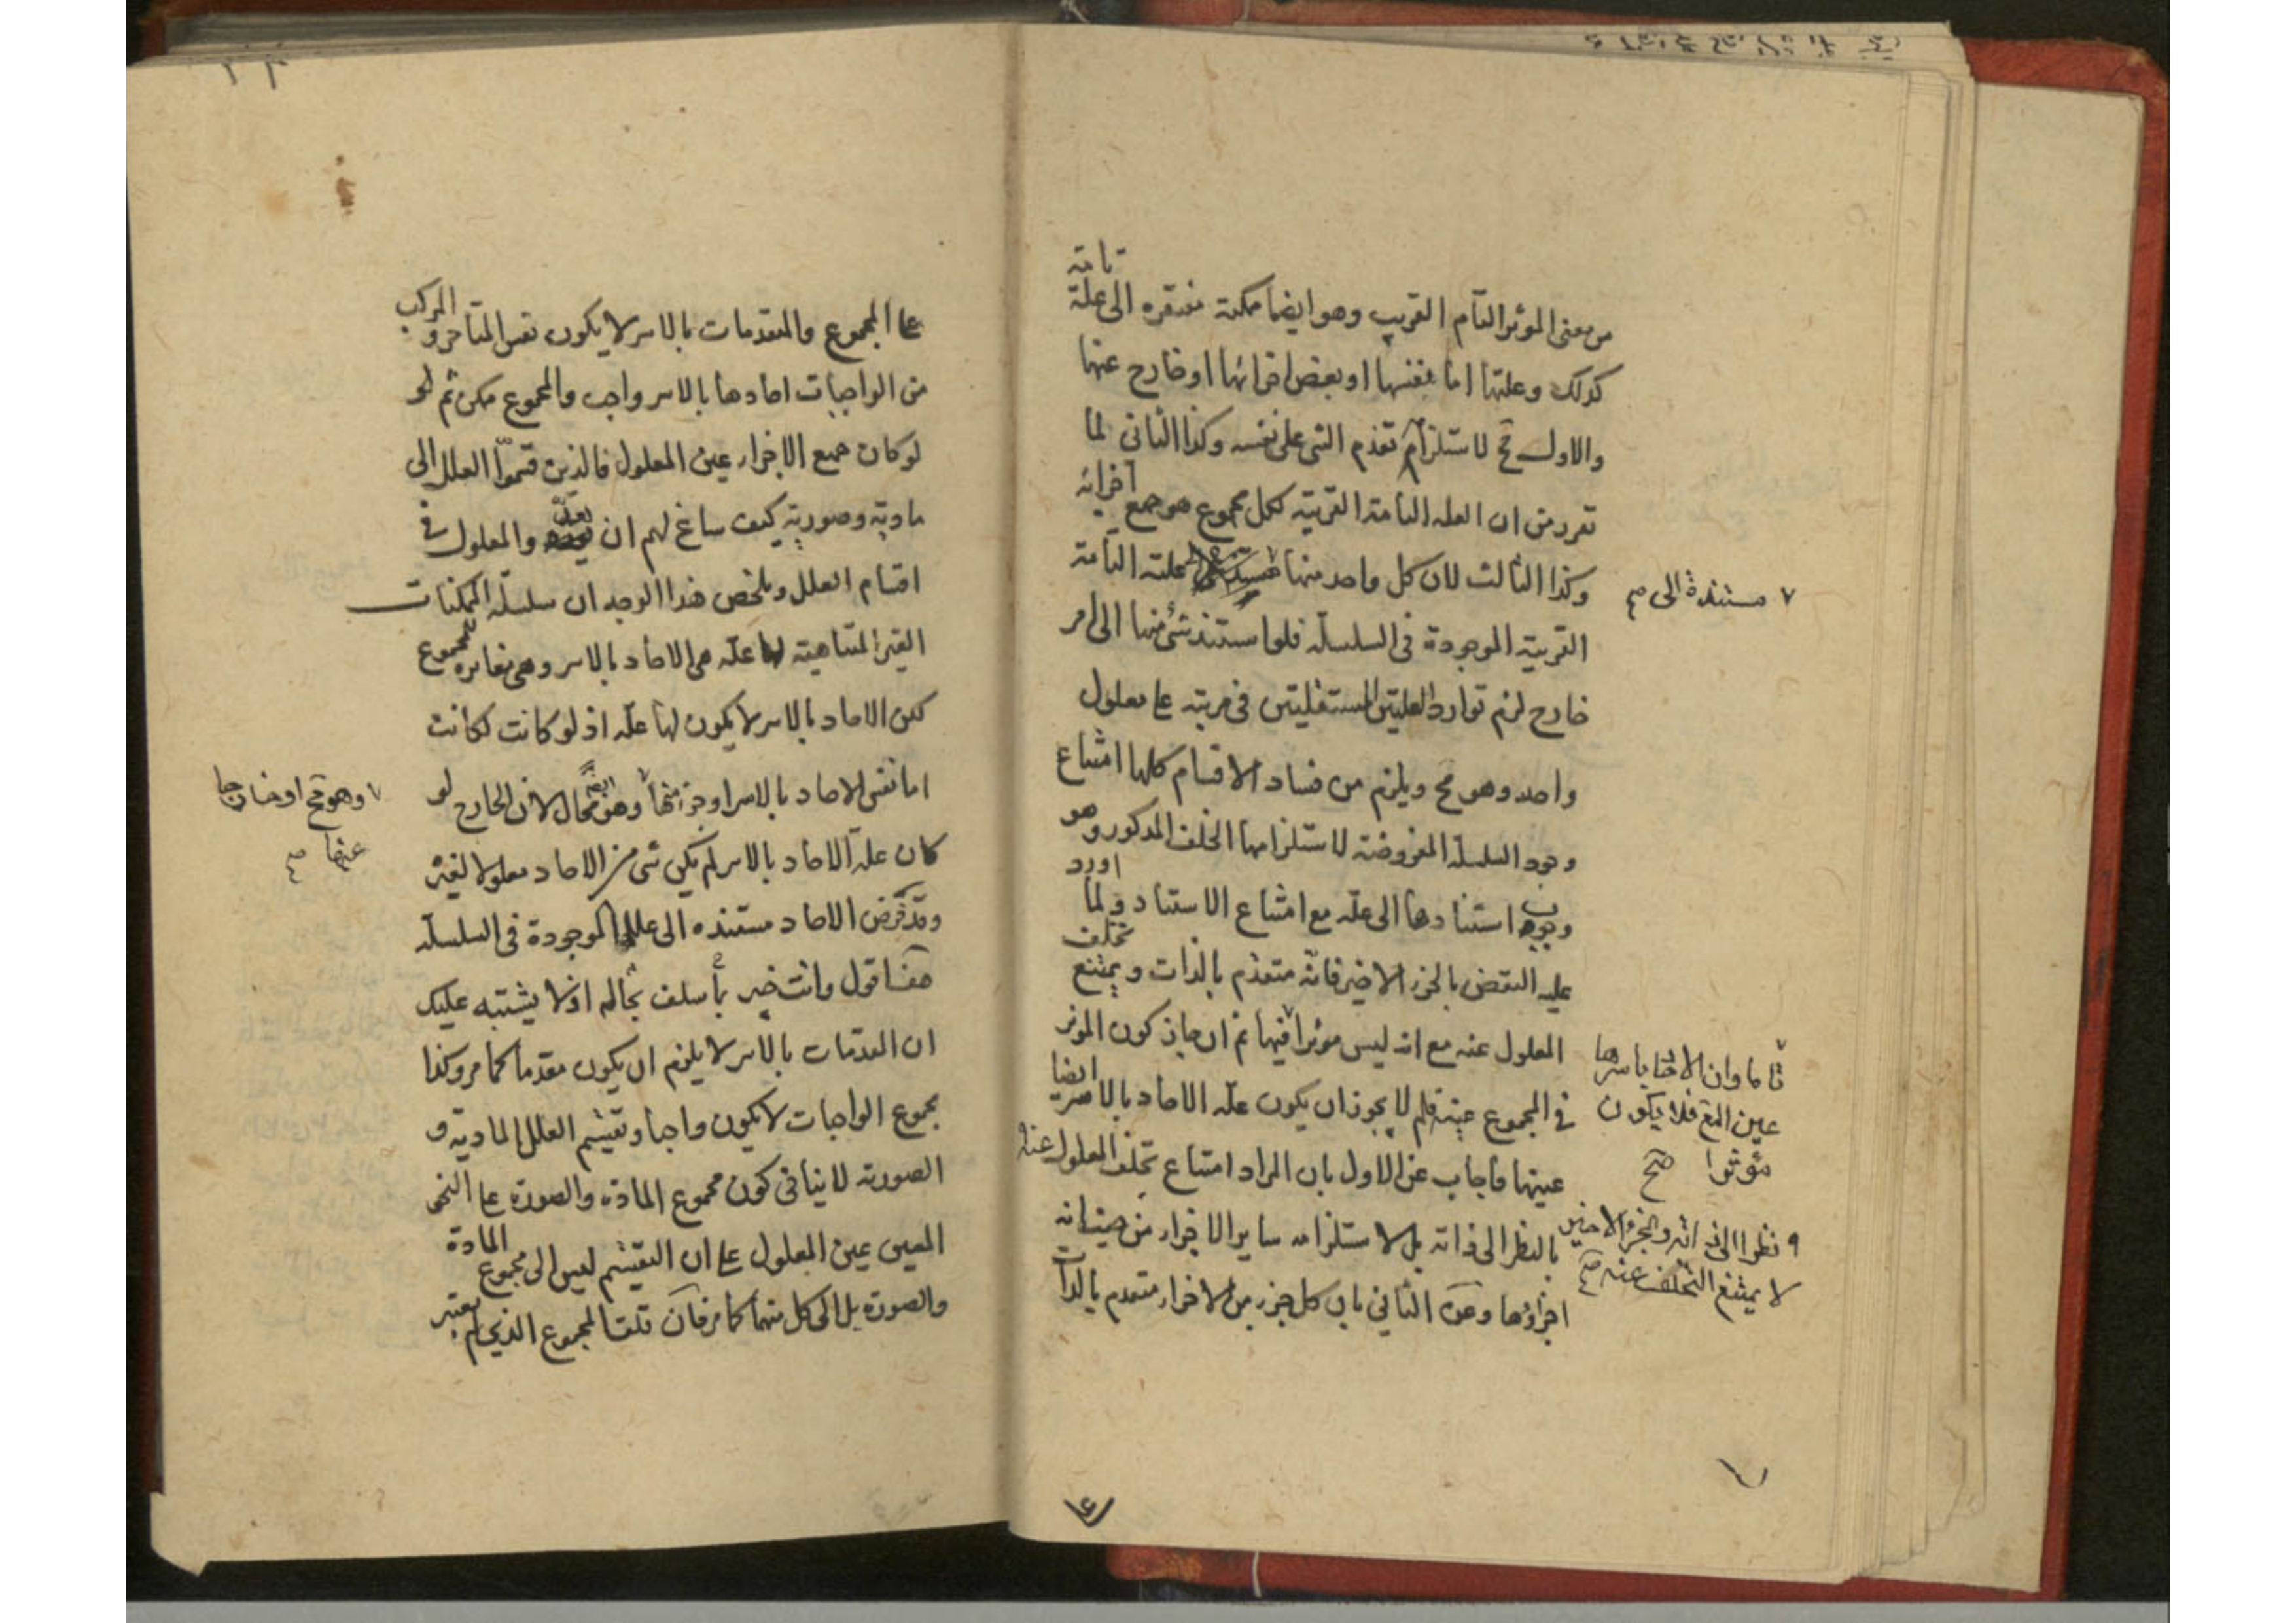 من معنى الموثر التام القريب وهو ايضا ممكنة مفتقره الى علة تامة
كذلك وعلتها اما نفسها او بعض اجزائها او خارج عنها
والاول مح لاستلزام تقدم الشى على نفسه وكذا الثانى لما
تقرر من ان العله التامة القريبة لكل مجموع هو جميع اجزائه
وكذا الثالث لان كل واحد منها علته التامة
٧ مستندة الى صح
القريبة الموجودة فى السلسله فلو استند شئ منها الى امر
خارج لزم توارد العلتين المستقلتين فى مرتبه على معلول
واحد وهو مح ويلزم من فساد الاقسام كلها امتناع
وجود السلسلة المفروضة لاستلزامها الخلف المذكور وهو
وجوب استنادها الى علة مع امتناع الاستناد ولما اورد
عليه النقض بالجزء الاخير فانه متقدم بالذات ويمتنع تخلف
المعلول عنه مع انه ليس موثرا فيها ثم ان جاز كون الموثر
٧ تاما وان الاحاد باسرها
عين المع فلا يكون
موثرا صح
فى المجموع عينه فلم لا يجوز ان يكون علة الاحاد بالاسر ايضا
عينها فاجاب عن الاول بان المراد امتناع تخلف المعلول عنه
بالنظر الى ذاته بل لاستلزامه ساير الاجزاء من حيث انه
٩ نظرا الى ذاته والجزء الاخير
لا يمتنع التخلف عنه صح
اجزؤها وعن الثاني بان كل جزء من الاجزاء متقدم بالذات
على المجموع والمتقدمات بالاسر لا يكون نفس المتاخر والمركب
من الواجبات احادها بالاسر واجب والمجموع ممكن ثم
لو كان جميع الاجزاء عين المعلول فالذين قسموا العلل الى
مادية وصورية كيف ساغ لهم ان والمعلول فى
اقسام العلل وملخص هذا الوجه ان سلسلة الممكنات
الغير المتناهية لها علة هى الاحاد بالاسر وهى مغايرة للمجموع
لكن الاحاد بالاسر لا يكون لها علة اذ لو كانت لكانت
اما نفس الاحاد بالاسر او جزء منها وهو ايضا محال لان الخارج لو
٧ وهو مح او خارجا
عنها صح
كان علة الاحاد بالاسر لم يكن شى من الاحاد معلولا لغيره
وقد فرض الاحاد مستنده الى علل الموجودة فى السلسلة
هف اقول وانت خبير بما سلف بحاله اذ لا يشتبه عليك
ان المقدمات بالاسر لا يلزم ان يكون مقدما كما مر وكذا
مجموع الواجبات لا يكون واجبا وتقسيم العلل الى المادية و
الصورية لا ينافى كون مجموع المادة والصورة على النحو
المعين عين المعلول على ان التقسيم ليس الى مجموع المادة
والصورة بل الى كل منهما كما مر فان قلت المجموع الذى لم يعتبر